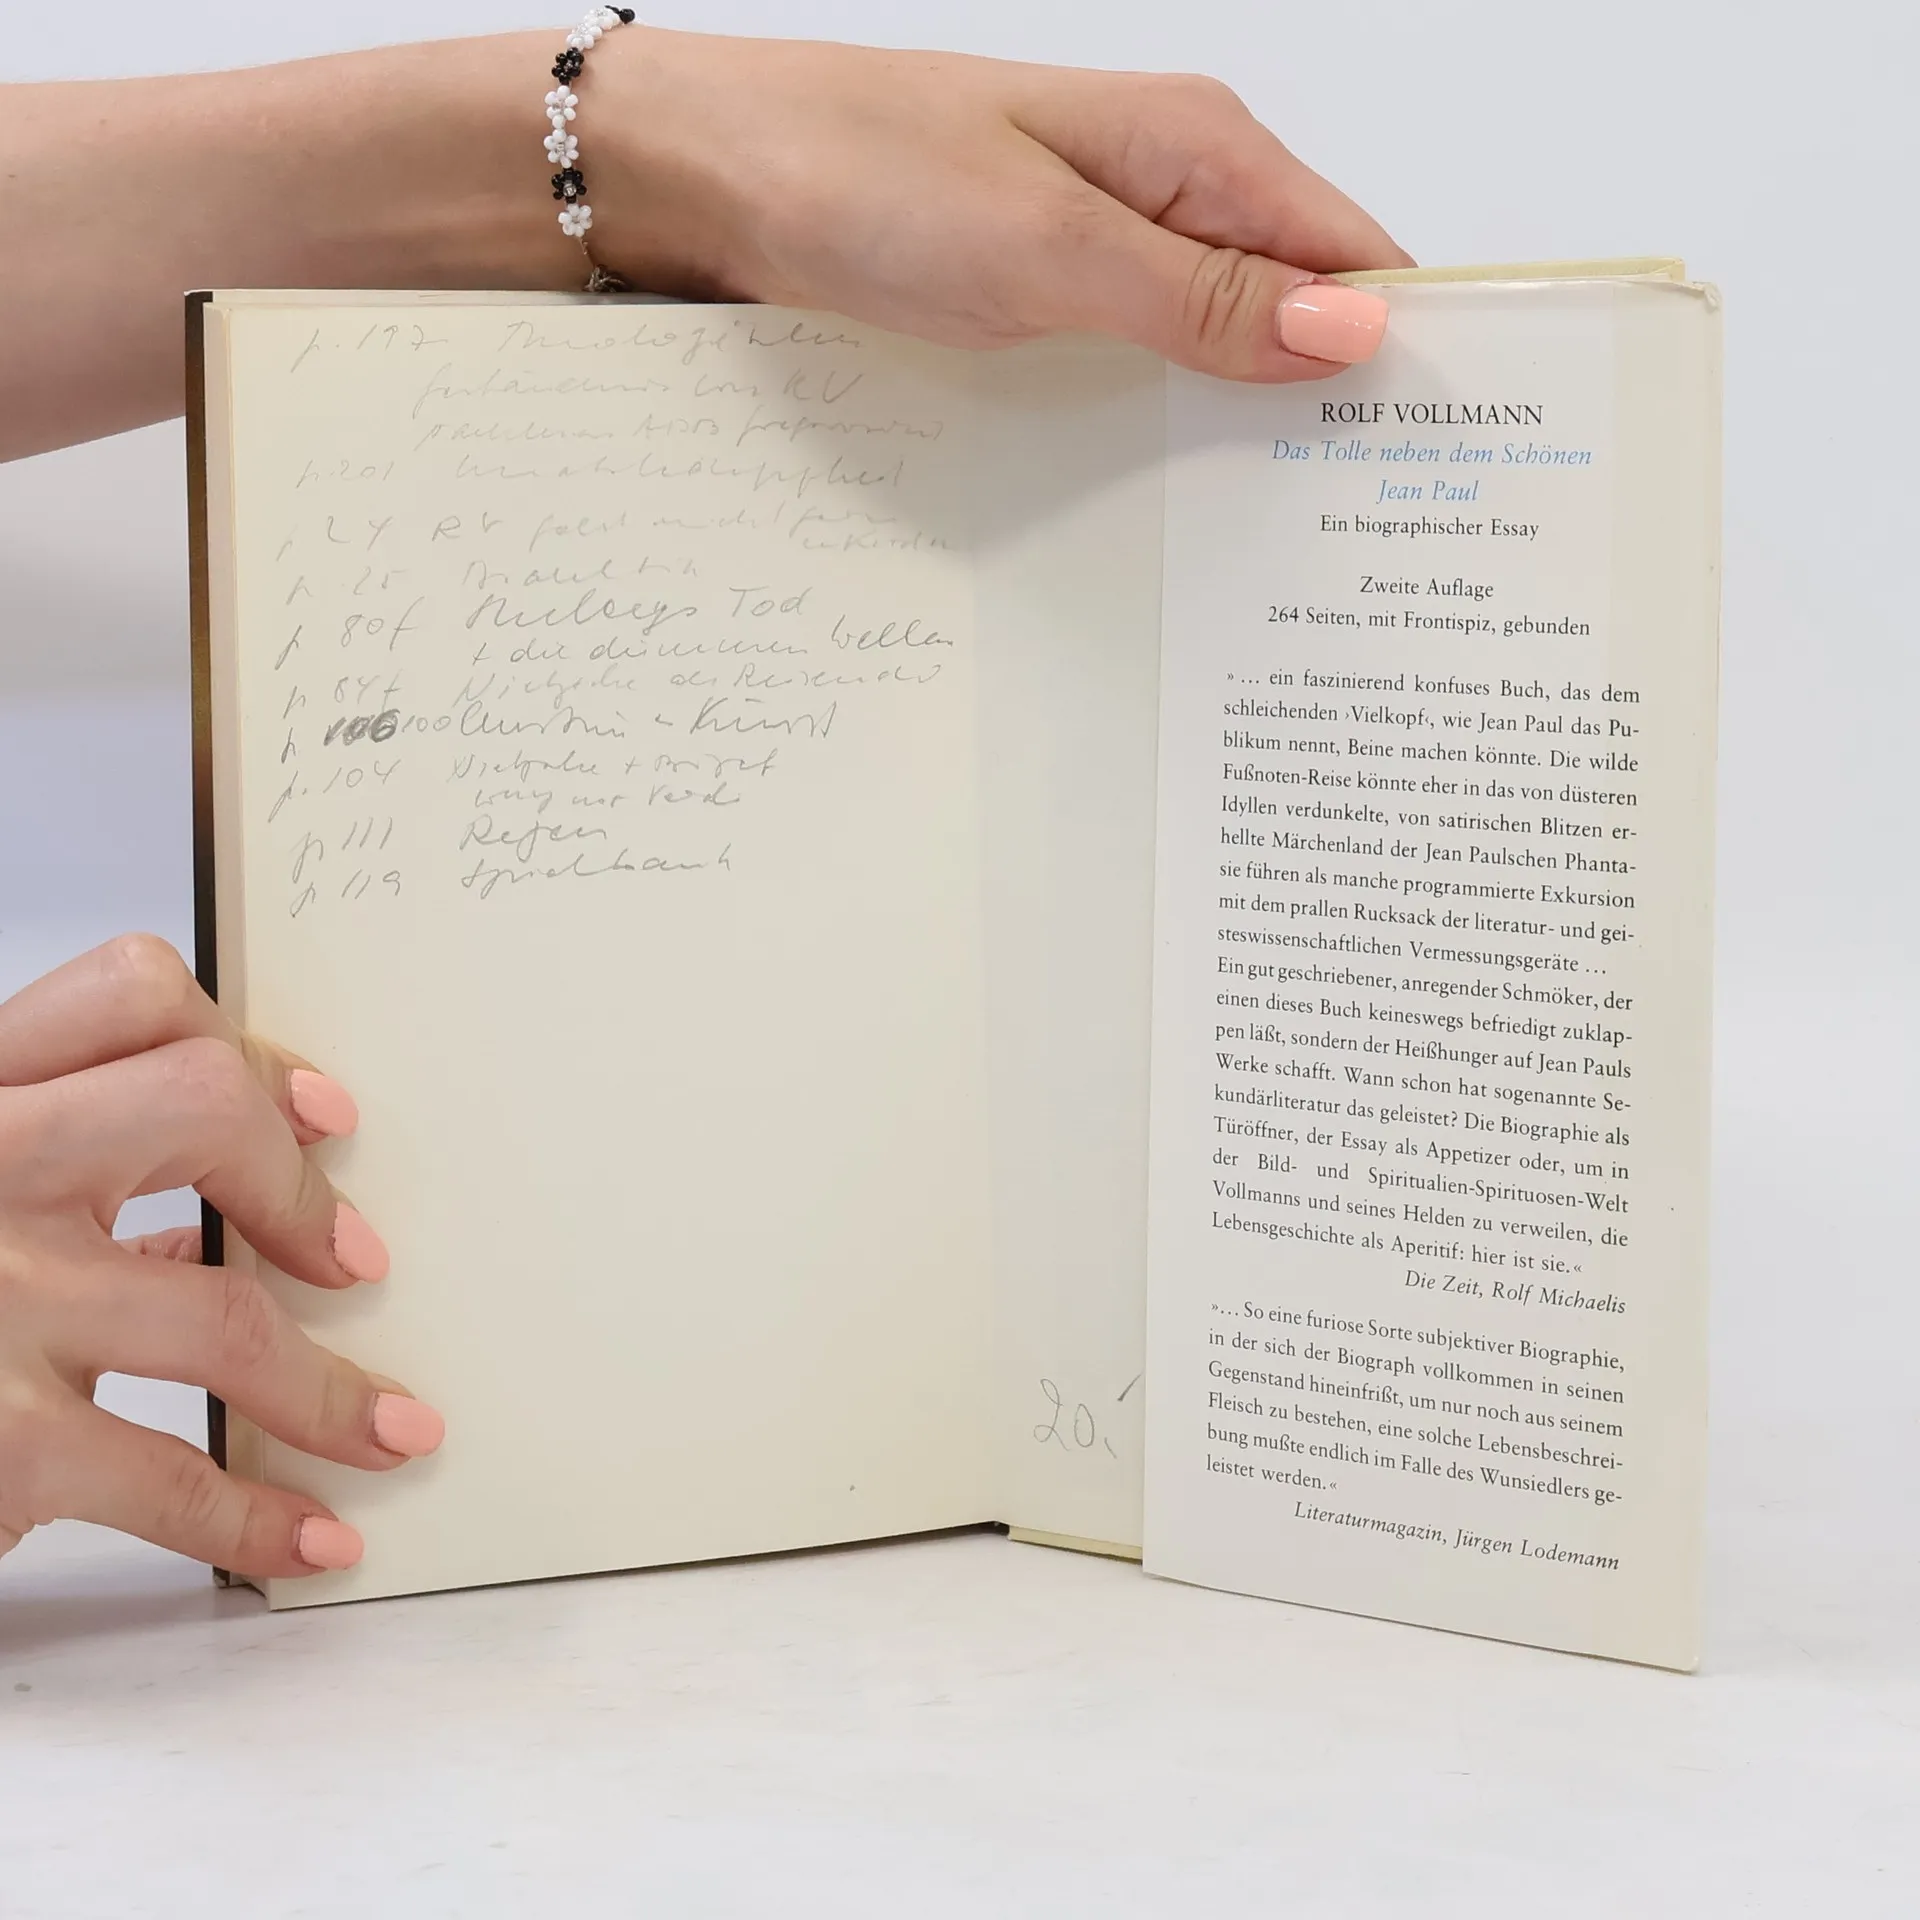 p. 197
von RV
p. 201
p 24 RV nicht
p 25
p 80f Tod
+ die dummen Wellen
p 84f Nietzsche als Reisender
p 100 Kunst
p. 104 Nietzsche +
Verdi
p 111 Regen
p 119 Spielbank
20,
ROLF VOLLMANN
Das Tolle neben dem Schönen
Jean Paul
Ein biographischer Essay
Zweite Auflage
264 Seiten, mit Frontispiz, gebunden
»… ein faszinierend konfuses Buch, das dem
schleichenden ›Vielkopf‹, wie Jean Paul das Pu-
blikum nennt, Beine machen könnte. Die wilde
Fußnoten-Reise könnte eher in das von düsteren
Idyllen verdunkelte, von satirischen Blitzen er-
hellte Märchenland der Jean Paulschen Phanta-
sie führen als manche programmierte Exkursion
mit dem prallen Rucksack der literatur- und gei-
steswissenschaftlichen Vermessungsgeräte …
Ein gut geschriebener, anregender Schmöker, der
einen dieses Buch keineswegs befriedigt zuklap-
pen läßt, sondern der Heißhunger auf Jean Pauls
Werke schafft. Wann schon hat sogenannte Se-
kundärliteratur das geleistet? Die Biographie als
Türöffner, der Essay als Appetizer oder, um in
der Bild- und Spiritualien-Spirituosen-Welt
Vollmanns und seines Helden zu verweilen, die
Lebensgeschichte als Aperitif: hier ist sie.«
Die Zeit, Rolf Michaelis
»… So eine furiose Sorte subjektiver Biographie,
in der sich der Biograph vollkommen in seinen
Gegenstand hineinfrißt, um nur noch aus seinem
Fleisch zu bestehen, eine solche Lebensbeschrei-
bung mußte endlich im Falle des Wunsiedlers ge-
leistet werden.«
Literaturmagazin, Jürgen Lodemann